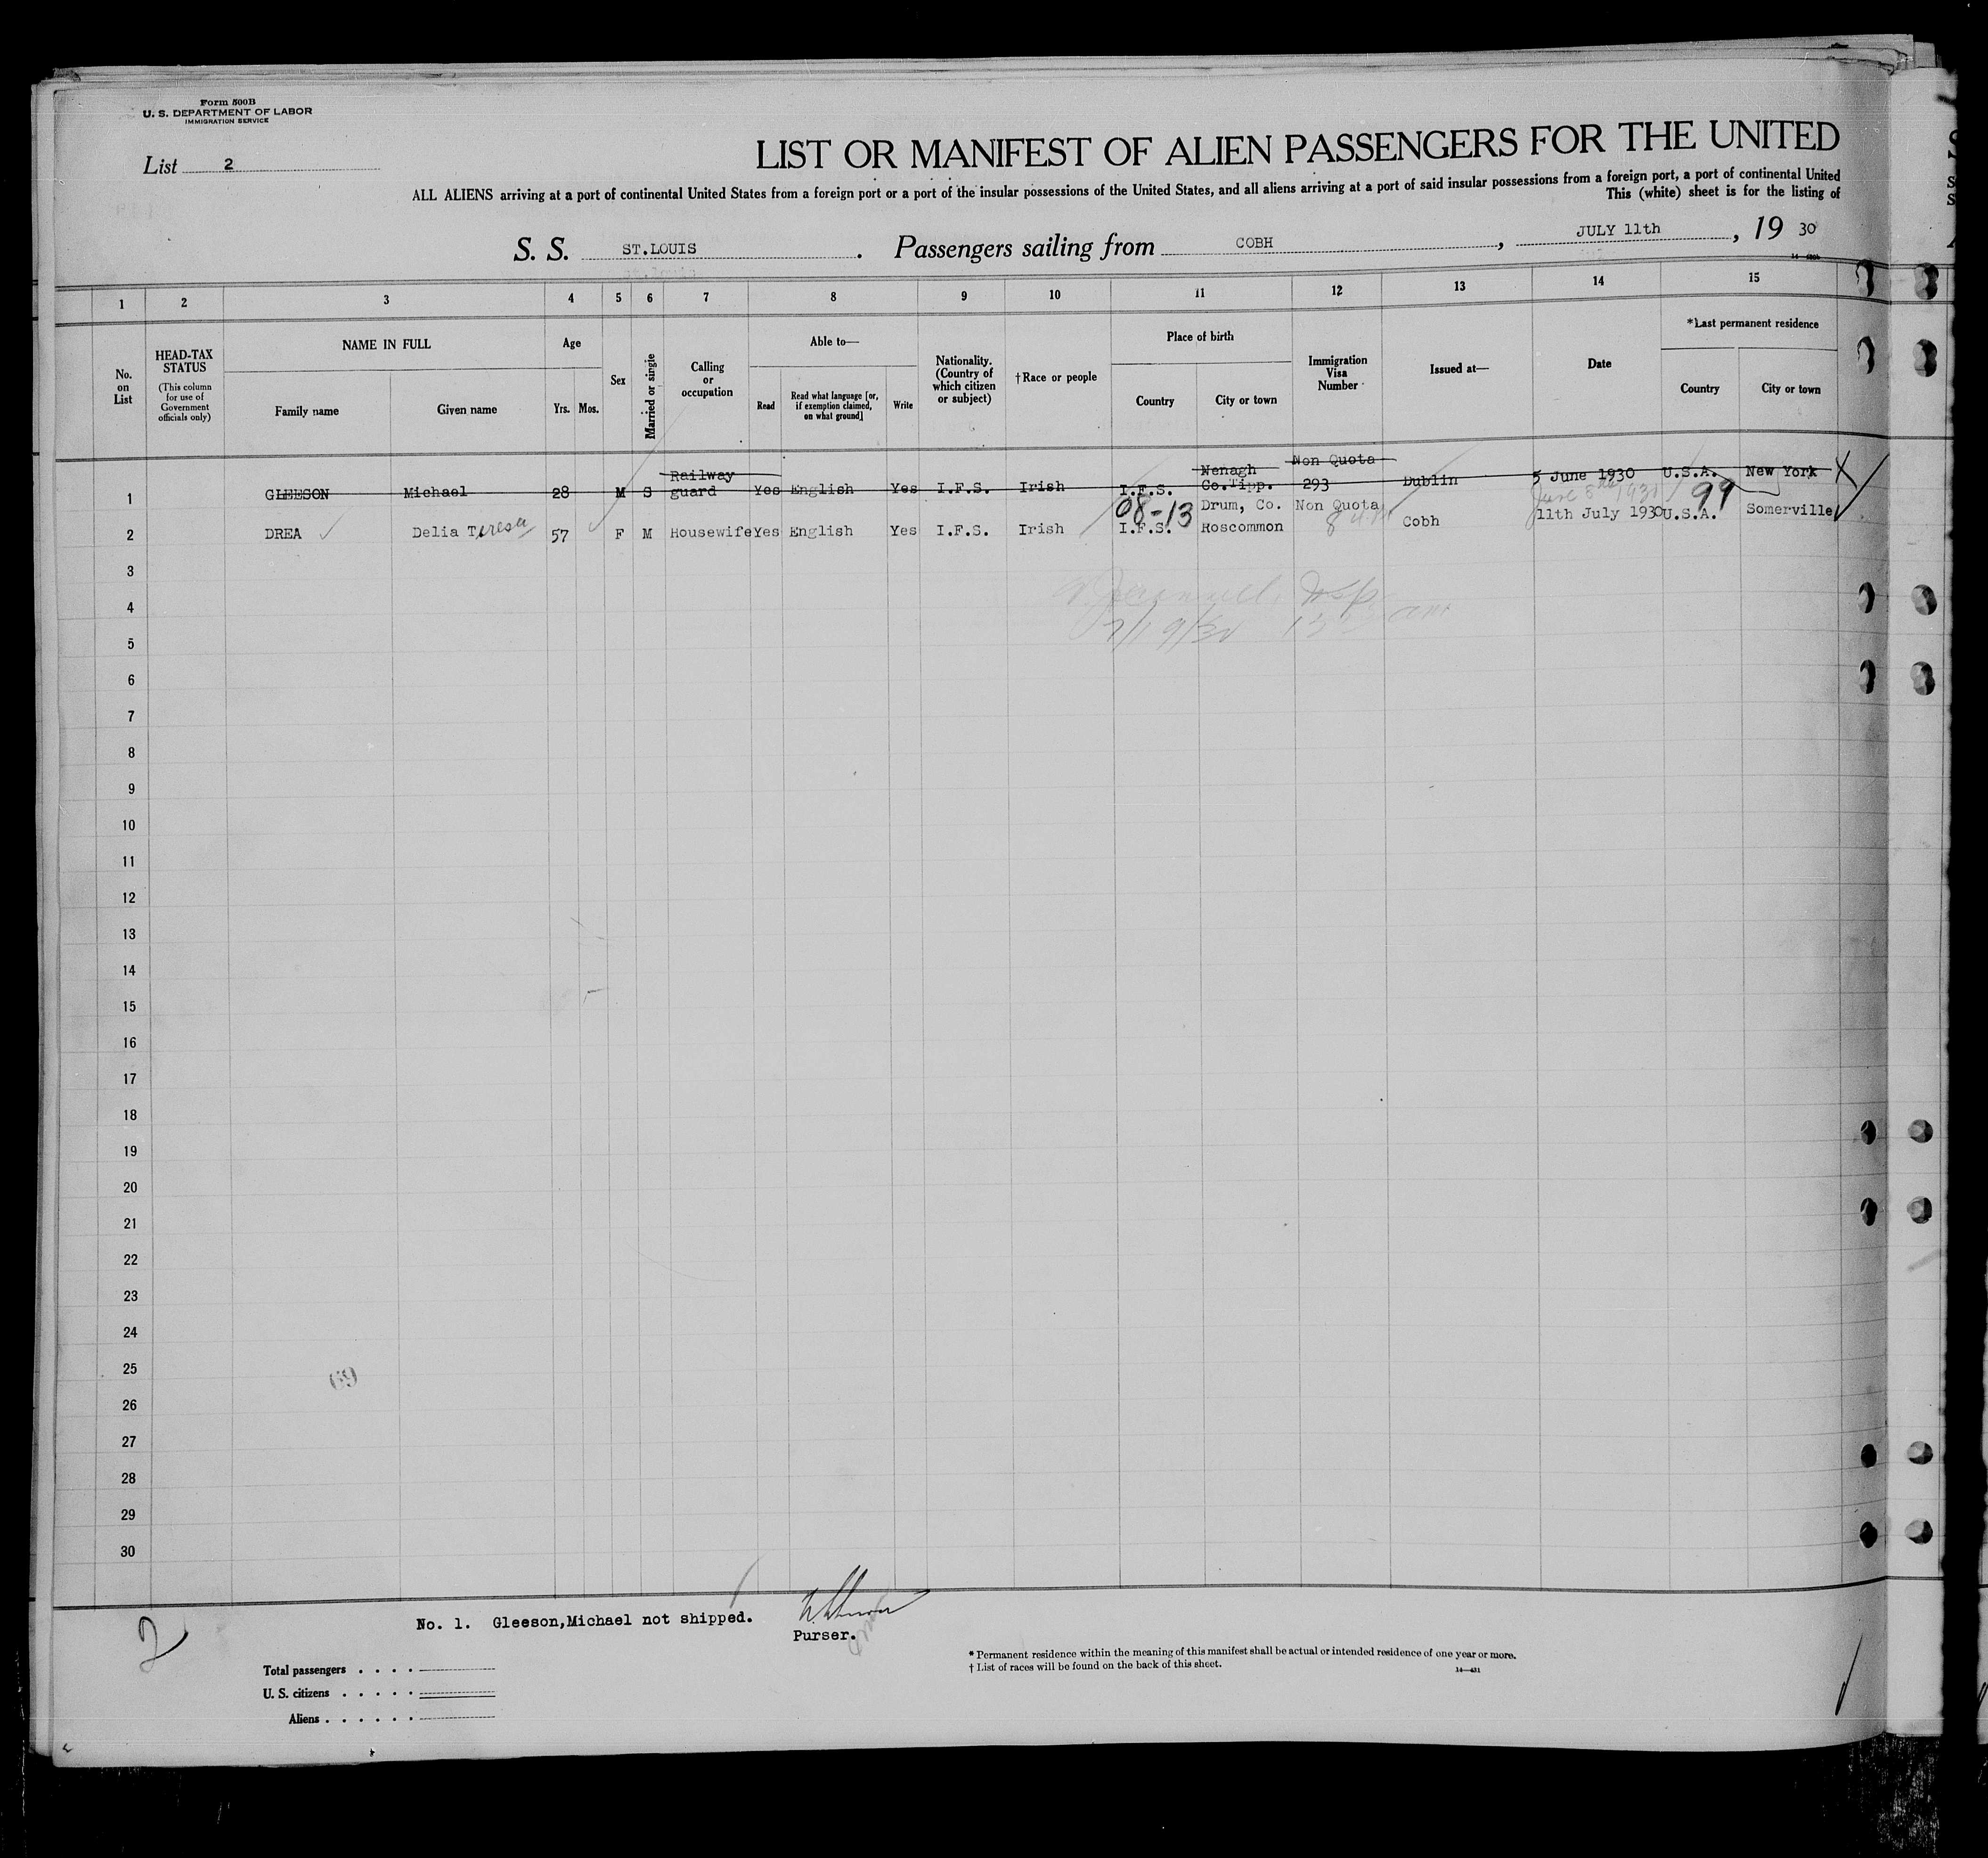 Form 500B
U. S. DEPARTMENT OF LABOR
IMMIGRATION SERVICE
List 2
LIST OR MANIFEST OF ALIEN PASSENGERS FOR THE UNITED
ALL ALIENS arriving at a port of continental United States from a foreign port or a port of the insular possessions of the United States, and all aliens arriving at a port of said insular possessions from a foreign port, a port of continental United
This (white) sheet is for the listing of
S. S. ST.LOUIS. Passengers sailing from COBH, JULY 11th, 19 30
1 2 3 4 5 6 7 8 9 10 11 12 13 14 15
No. on List
HEAD-TAX STATUS
(This column for use of Government officials only)
NAME IN FULL
Family name
Given name
Age
Yrs. Mos.
Sex
Married or single
Calling or occupation
Able to—
Read
Read what language [or, if exemption claimed, on what ground]
Write
Nationality. (Country of which citizen or subject)
†Race or people
Place of birth
Country
City or town
Immigration Visa Number
Issued at—
Date
*Last permanent residence
Country
City or town
1 GLEESON Michael 28 M S Railway guard Yes English Yes I.F.S. Irish I.F.S. Nenagh Co.Tipp. Non Quota 293 Dublin 5 June 1930 U.S.A. New York
08-13 99
2 DREA Delia Teresa 57 F M Housewife Yes English Yes I.F.S. Irish I.F.S. Drum, Co. Roscommon Non Quota Cobh 11th July 1930 U.S.A. Somerville
3
4
5
6
7
8
9
10
11
12
13
14
15
16
17
18
19
20
21
22
23
24
25
69
26
27
28
29
30
2
No. 1. Gleeson,Michael not shipped.
Purser.
Total passengers . . . .
U. S. citizens . . . . .
Aliens . . . . . .
* Permanent residence within the meaning of this manifest shall be actual or intended residence of one year or more.
† List of races will be found on the back of this sheet.
14—431